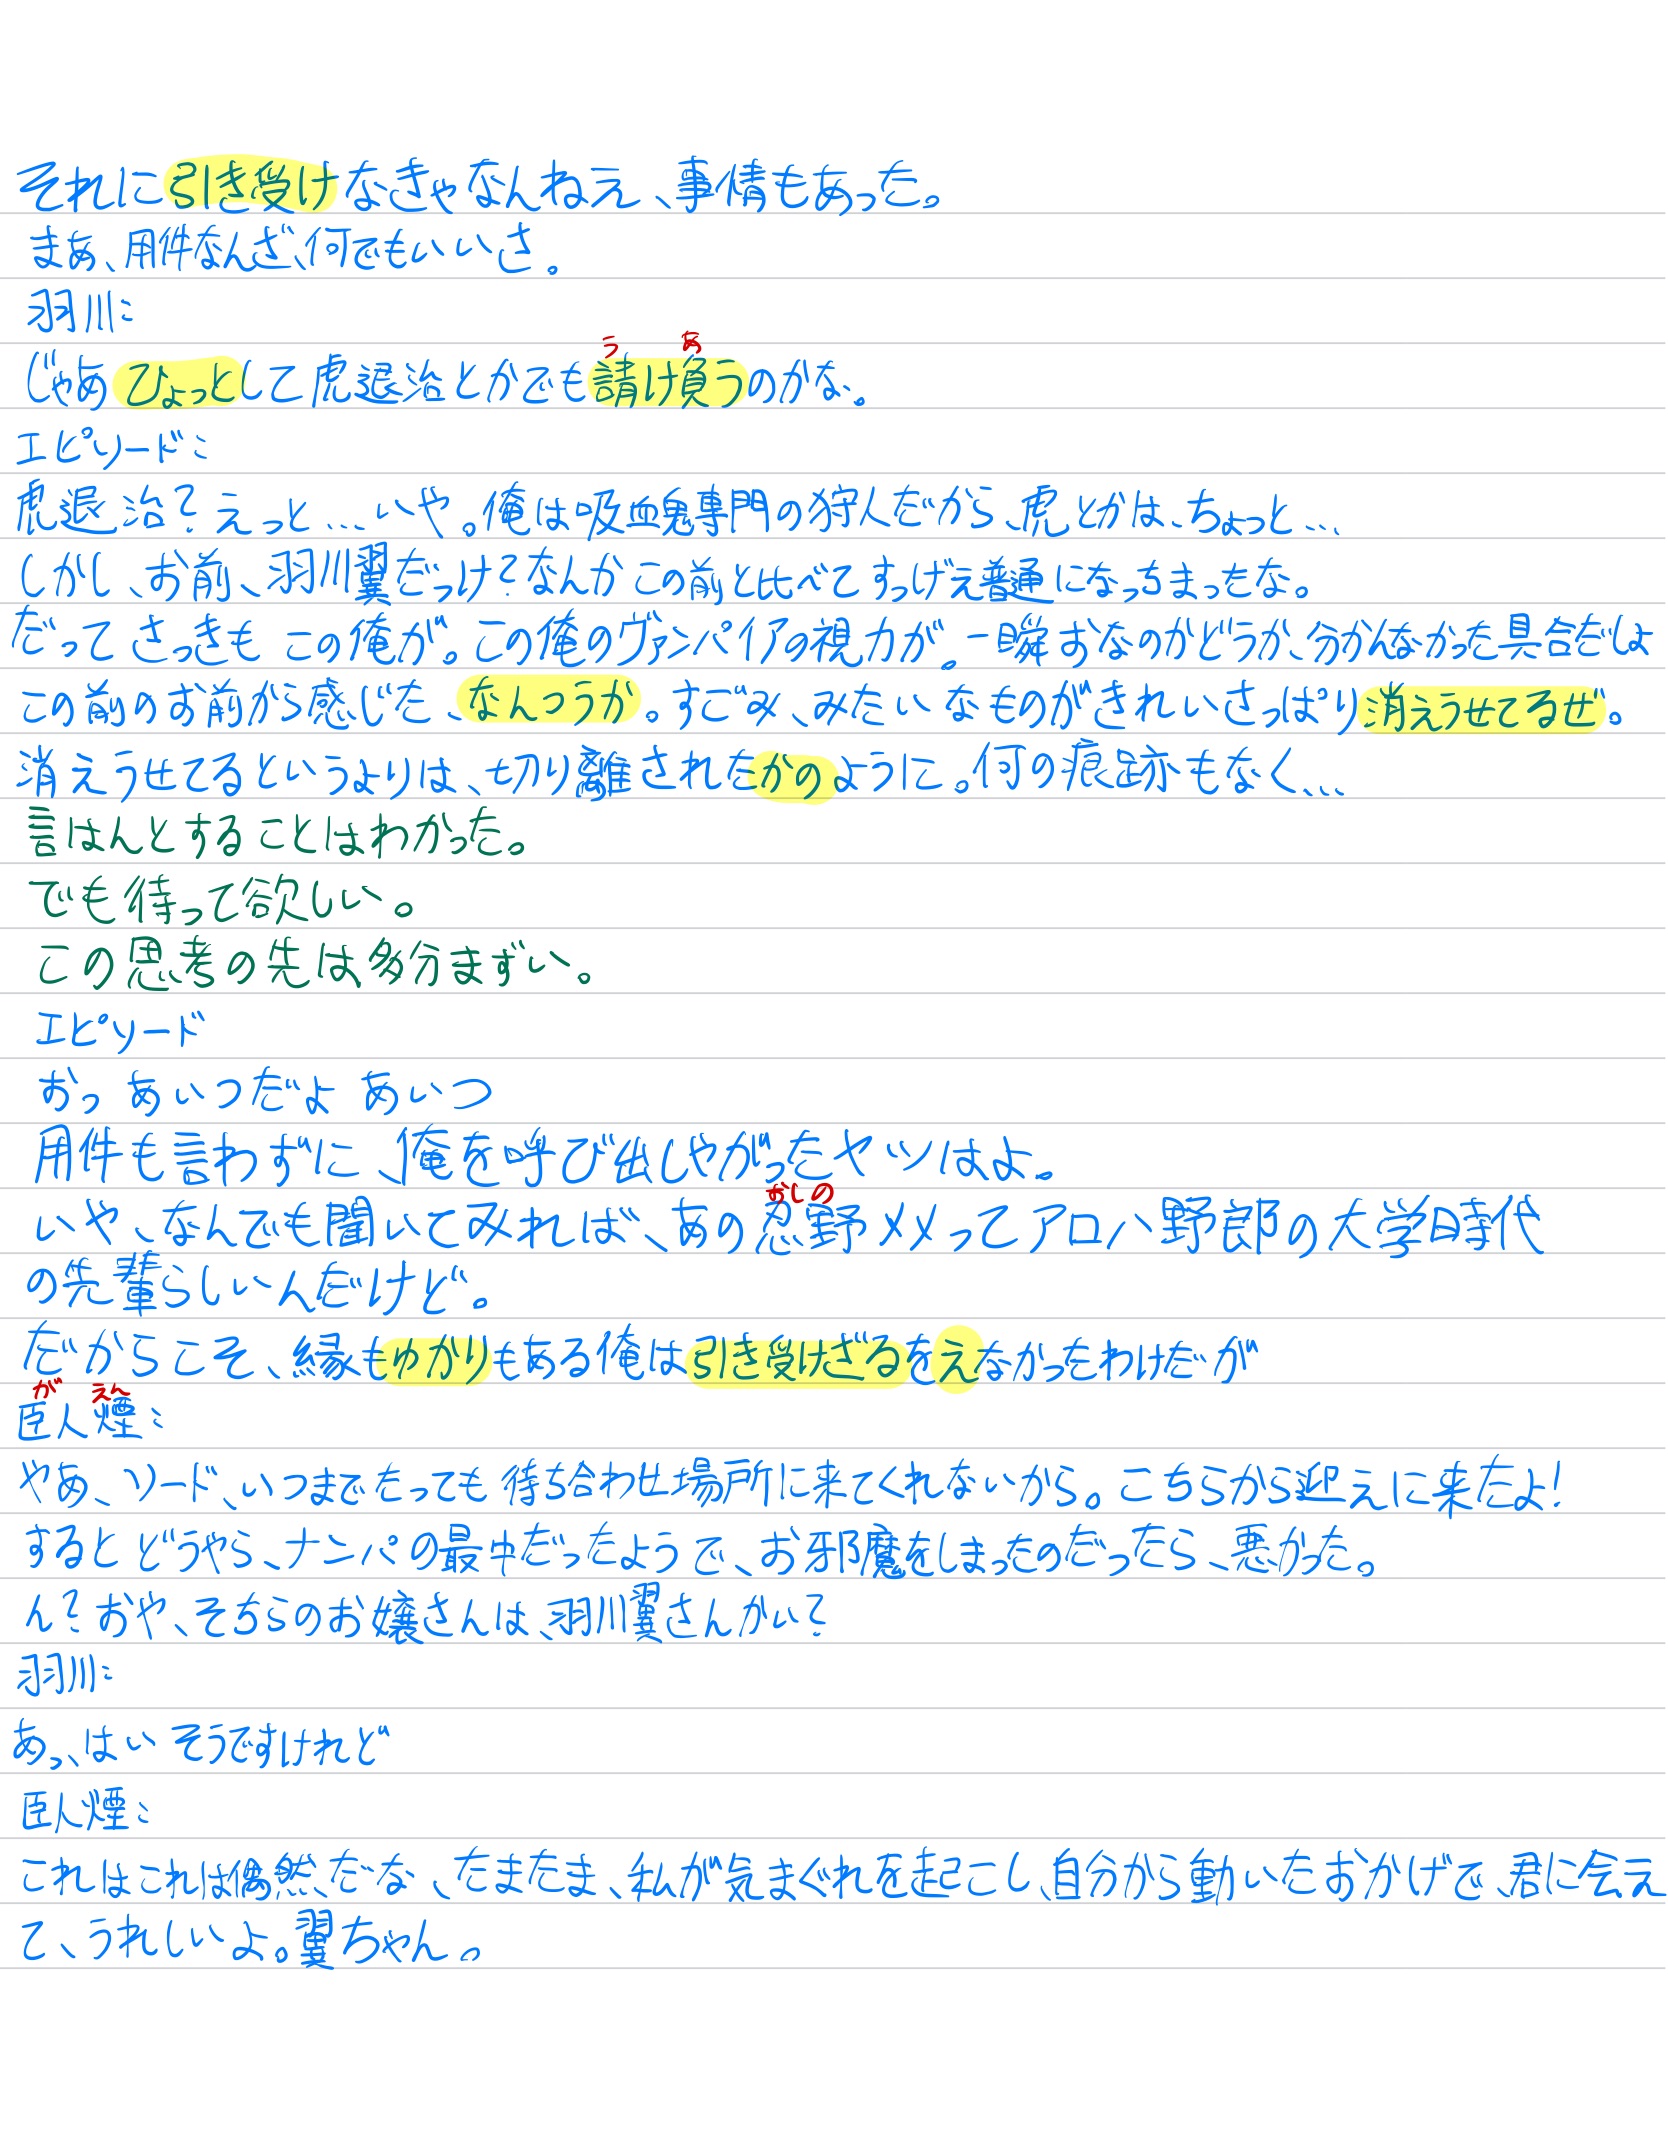 それに引き受けなきゃなんねえ、事情もあった。
まあ、用件なんざ、何でもいいさ。
羽川:
うあ
じゃあひょっとして虎退治とかでも請け負うのかな、。
エピソード:
虎退治?えっと…いや。俺は吸血鬼専門の狩人だから、虎とかは、ちょっと…
しかし、お前、羽川翼だっけ?なんかこの前と比べてすっげえ普通になっちまったな。
だってさっきも この俺が。この俺のヴァンパイアの視力が。一瞬おなのかどうか、分かんなかった具合だしよ
この前のお前から感じた、なんつうか。すごみ、みたいなものがきれいさっぱり消えうせてるぜ。
消えうせてるというよりは、切り離されたかのように。何の痕跡もなく…
言はんとすることはわかった。
でも待って欲しい。
この思考の先は多分まずい。
エピソード
おっ あいつだよ あいつ
用件も言わずに、俺を呼び出しやがったヤツはよ。
おしの
いや、なんでも聞いてみれば、あの忍野メメってアロハ野郎の大学時代
の先輩らしいんだけど。
だからこそ、縁もゆかりもある俺は引き受けざるをえなかったわけだが
がえん
臣人煙:
やあ、ソード、いつまでたっても待ち合わせ場所に来てくれないから。こちらから迎えに来たよ!
するとどうやら、ナンパの最中だったようで、お邪魔をしまったのだったら、悪かった。
ん?おや、そちらのお嬢さんは、羽川翼さんかい?
羽川:
あっ、はい そうですけれど
臣人煙:
これはこれは偶然だな、たまたま、私が気まぐれを起こし、自分から動いたおかげで、君に会え
て、うれしいよ。翼ちゃん。